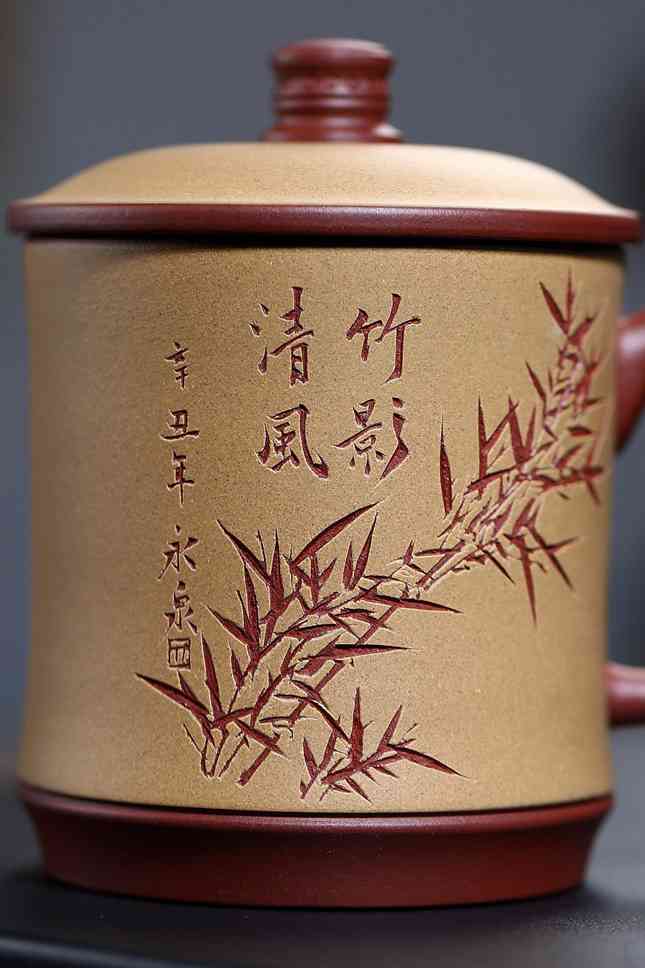 竹影
清風
辛丑年 永泉